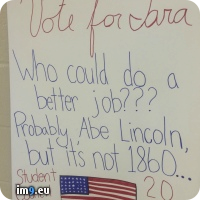 Vote for Sara
Who could do a
better job???
Probably Abe Lincoln,
but it's not 1860...
Student
20
im9.eu